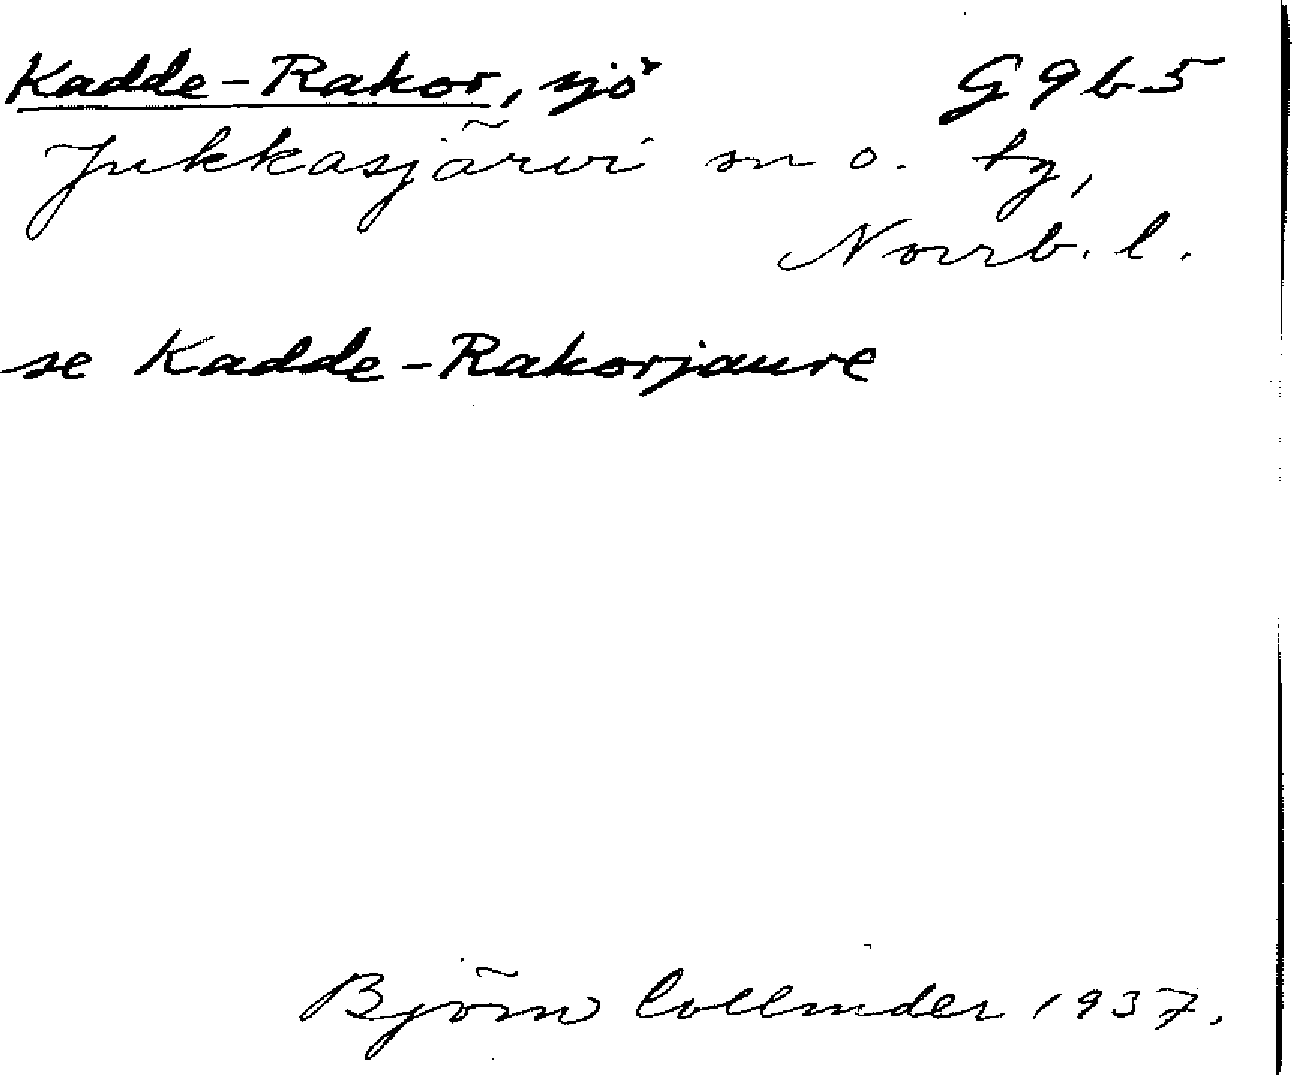 Kadde-Rakor, sjö G9b5
Jukkasjärvi sn o. tg,
Norrb. l.
se Kadde-Rakorjaure
Björn Collinder 1937.